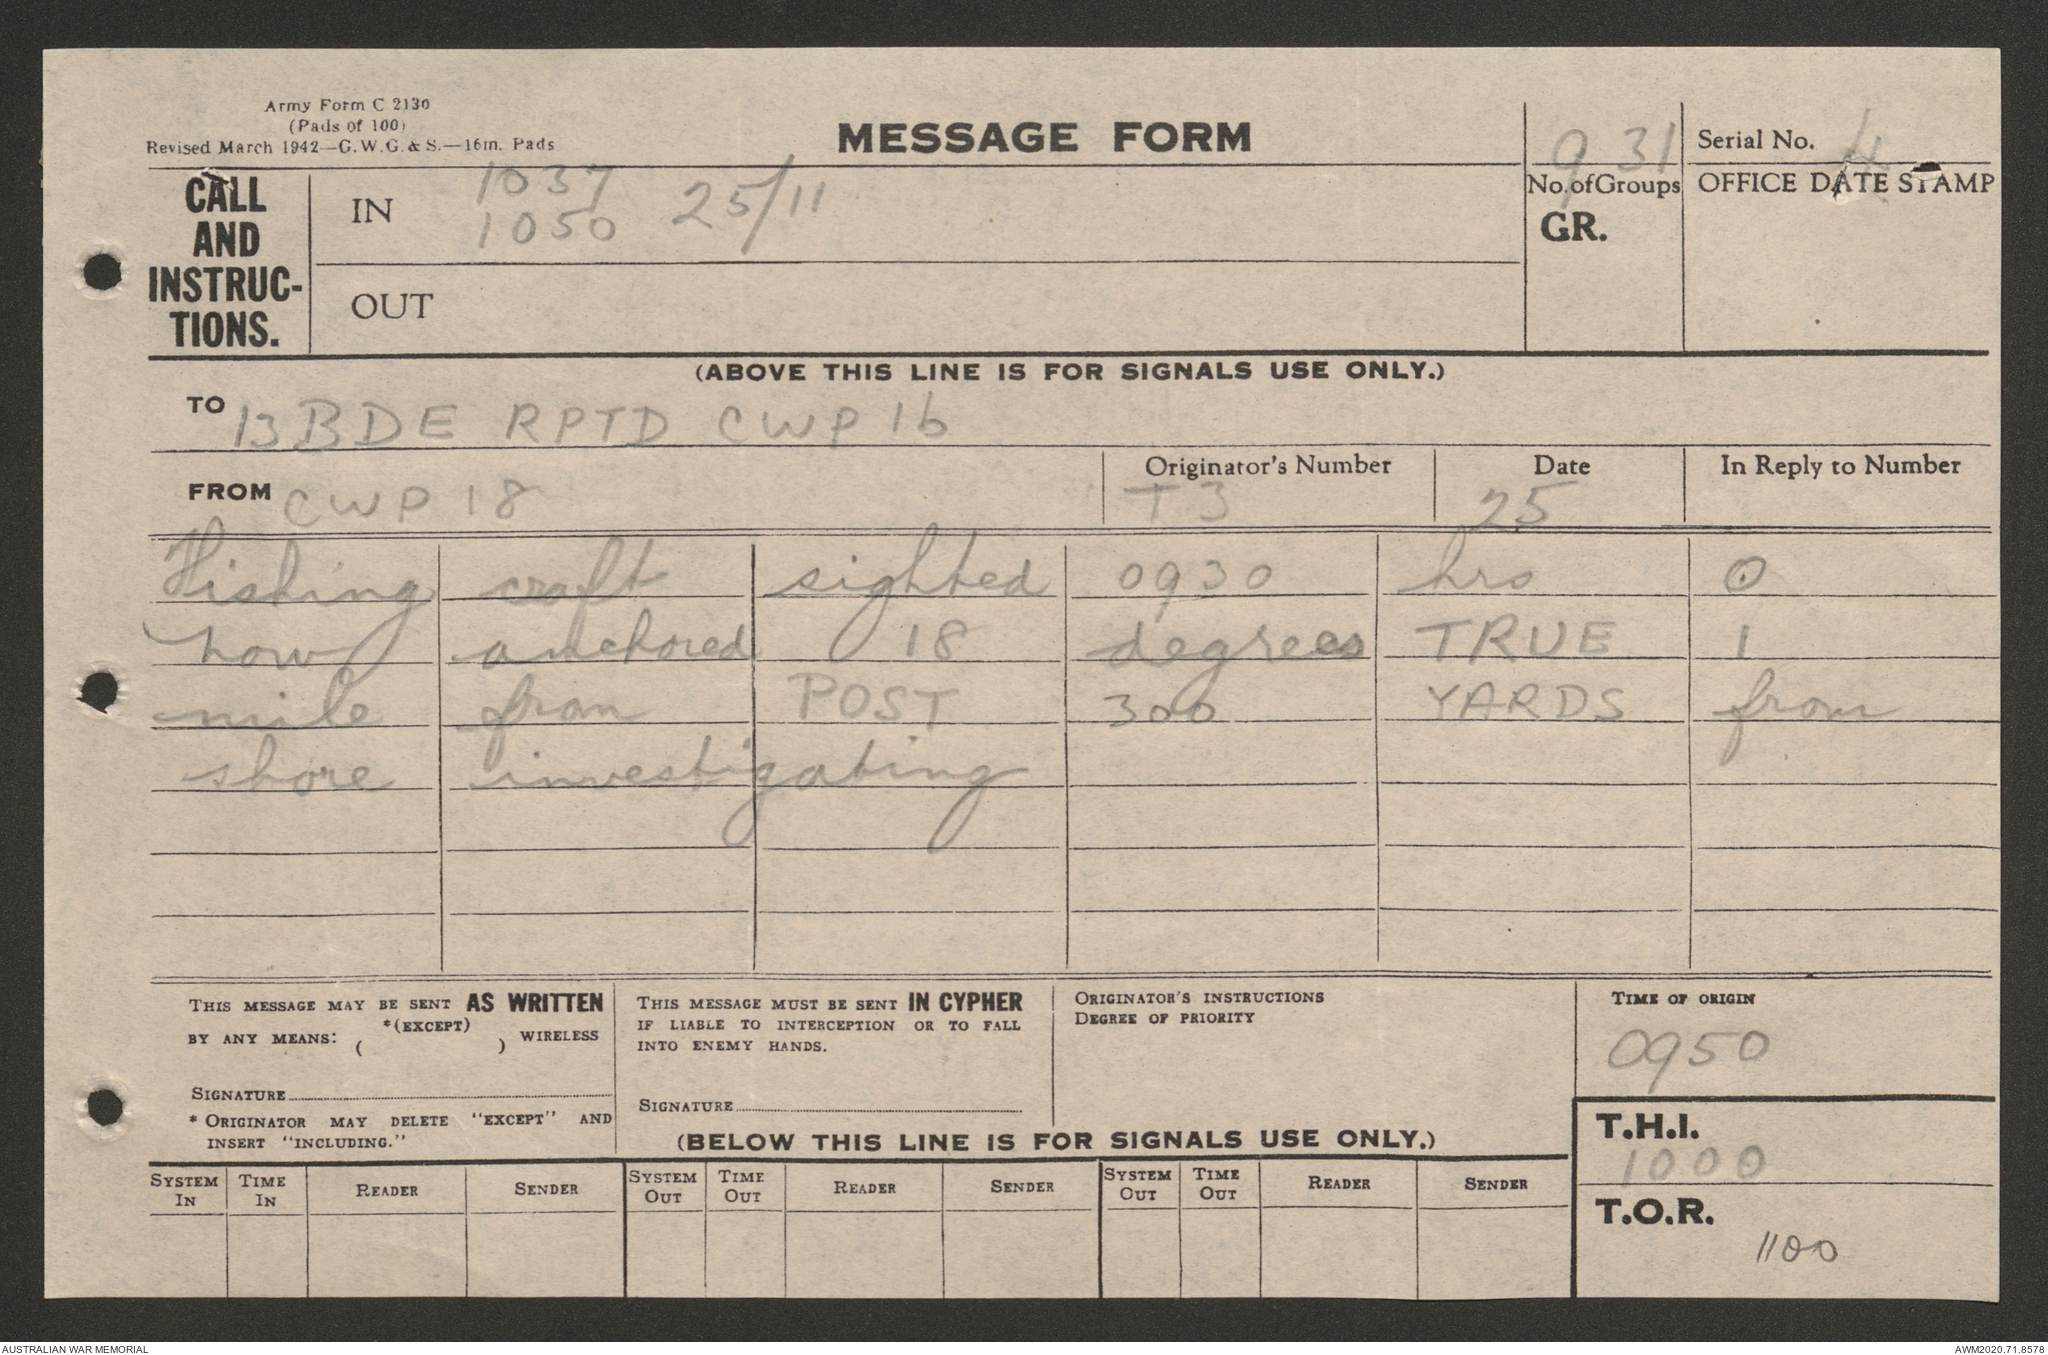 Army Form C 2130
(Pads of 100)
Revised March 1942—G.W.G. & S.—16m. Pads
MESSAGE FORM
9 31
No. of Groups
GR.
Serial No. 4
OFFICE DATE STAMP
CALL
AND
INSTRUC-
TIONS.
IN
1037
1050 25/11
OUT
(ABOVE THIS LINE IS FOR SIGNALS USE ONLY.)
TO 13 BDE RPTD CWP 16
FROM CWP 18
Originator's Number
T3
Date
25
In Reply to Number
Fishing craft sighted 0930 hrs 0
now anchored 18 degrees TRUE 1
mile from POST 300 YARDS from
shore investigating
THIS MESSAGE MAY BE SENT AS WRITTEN
BY ANY MEANS: *(EXCEPT) ( ) WIRELESS
SIGNATURE
* ORIGINATOR MAY DELETE "EXCEPT" AND
INSERT "INCLUDING."
THIS MESSAGE MUST BE SENT IN CYPHER
IF LIABLE TO INTERCEPTION OR TO FALL
INTO ENEMY HANDS.
SIGNATURE
ORIGINATOR'S INSTRUCTIONS
DEGREE OF PRIORITY
TIME OF ORIGIN
0950
(BELOW THIS LINE IS FOR SIGNALS USE ONLY.)
T.H.I.
1000
T.O.R.
1100
SYSTEM IN TIME IN READER SENDER SYSTEM OUT TIME OUT READER SENDER SYSTEM OUT TIME OUT READER SENDER
AUSTRALIAN WAR MEMORIAL
AWM2020.71.8578